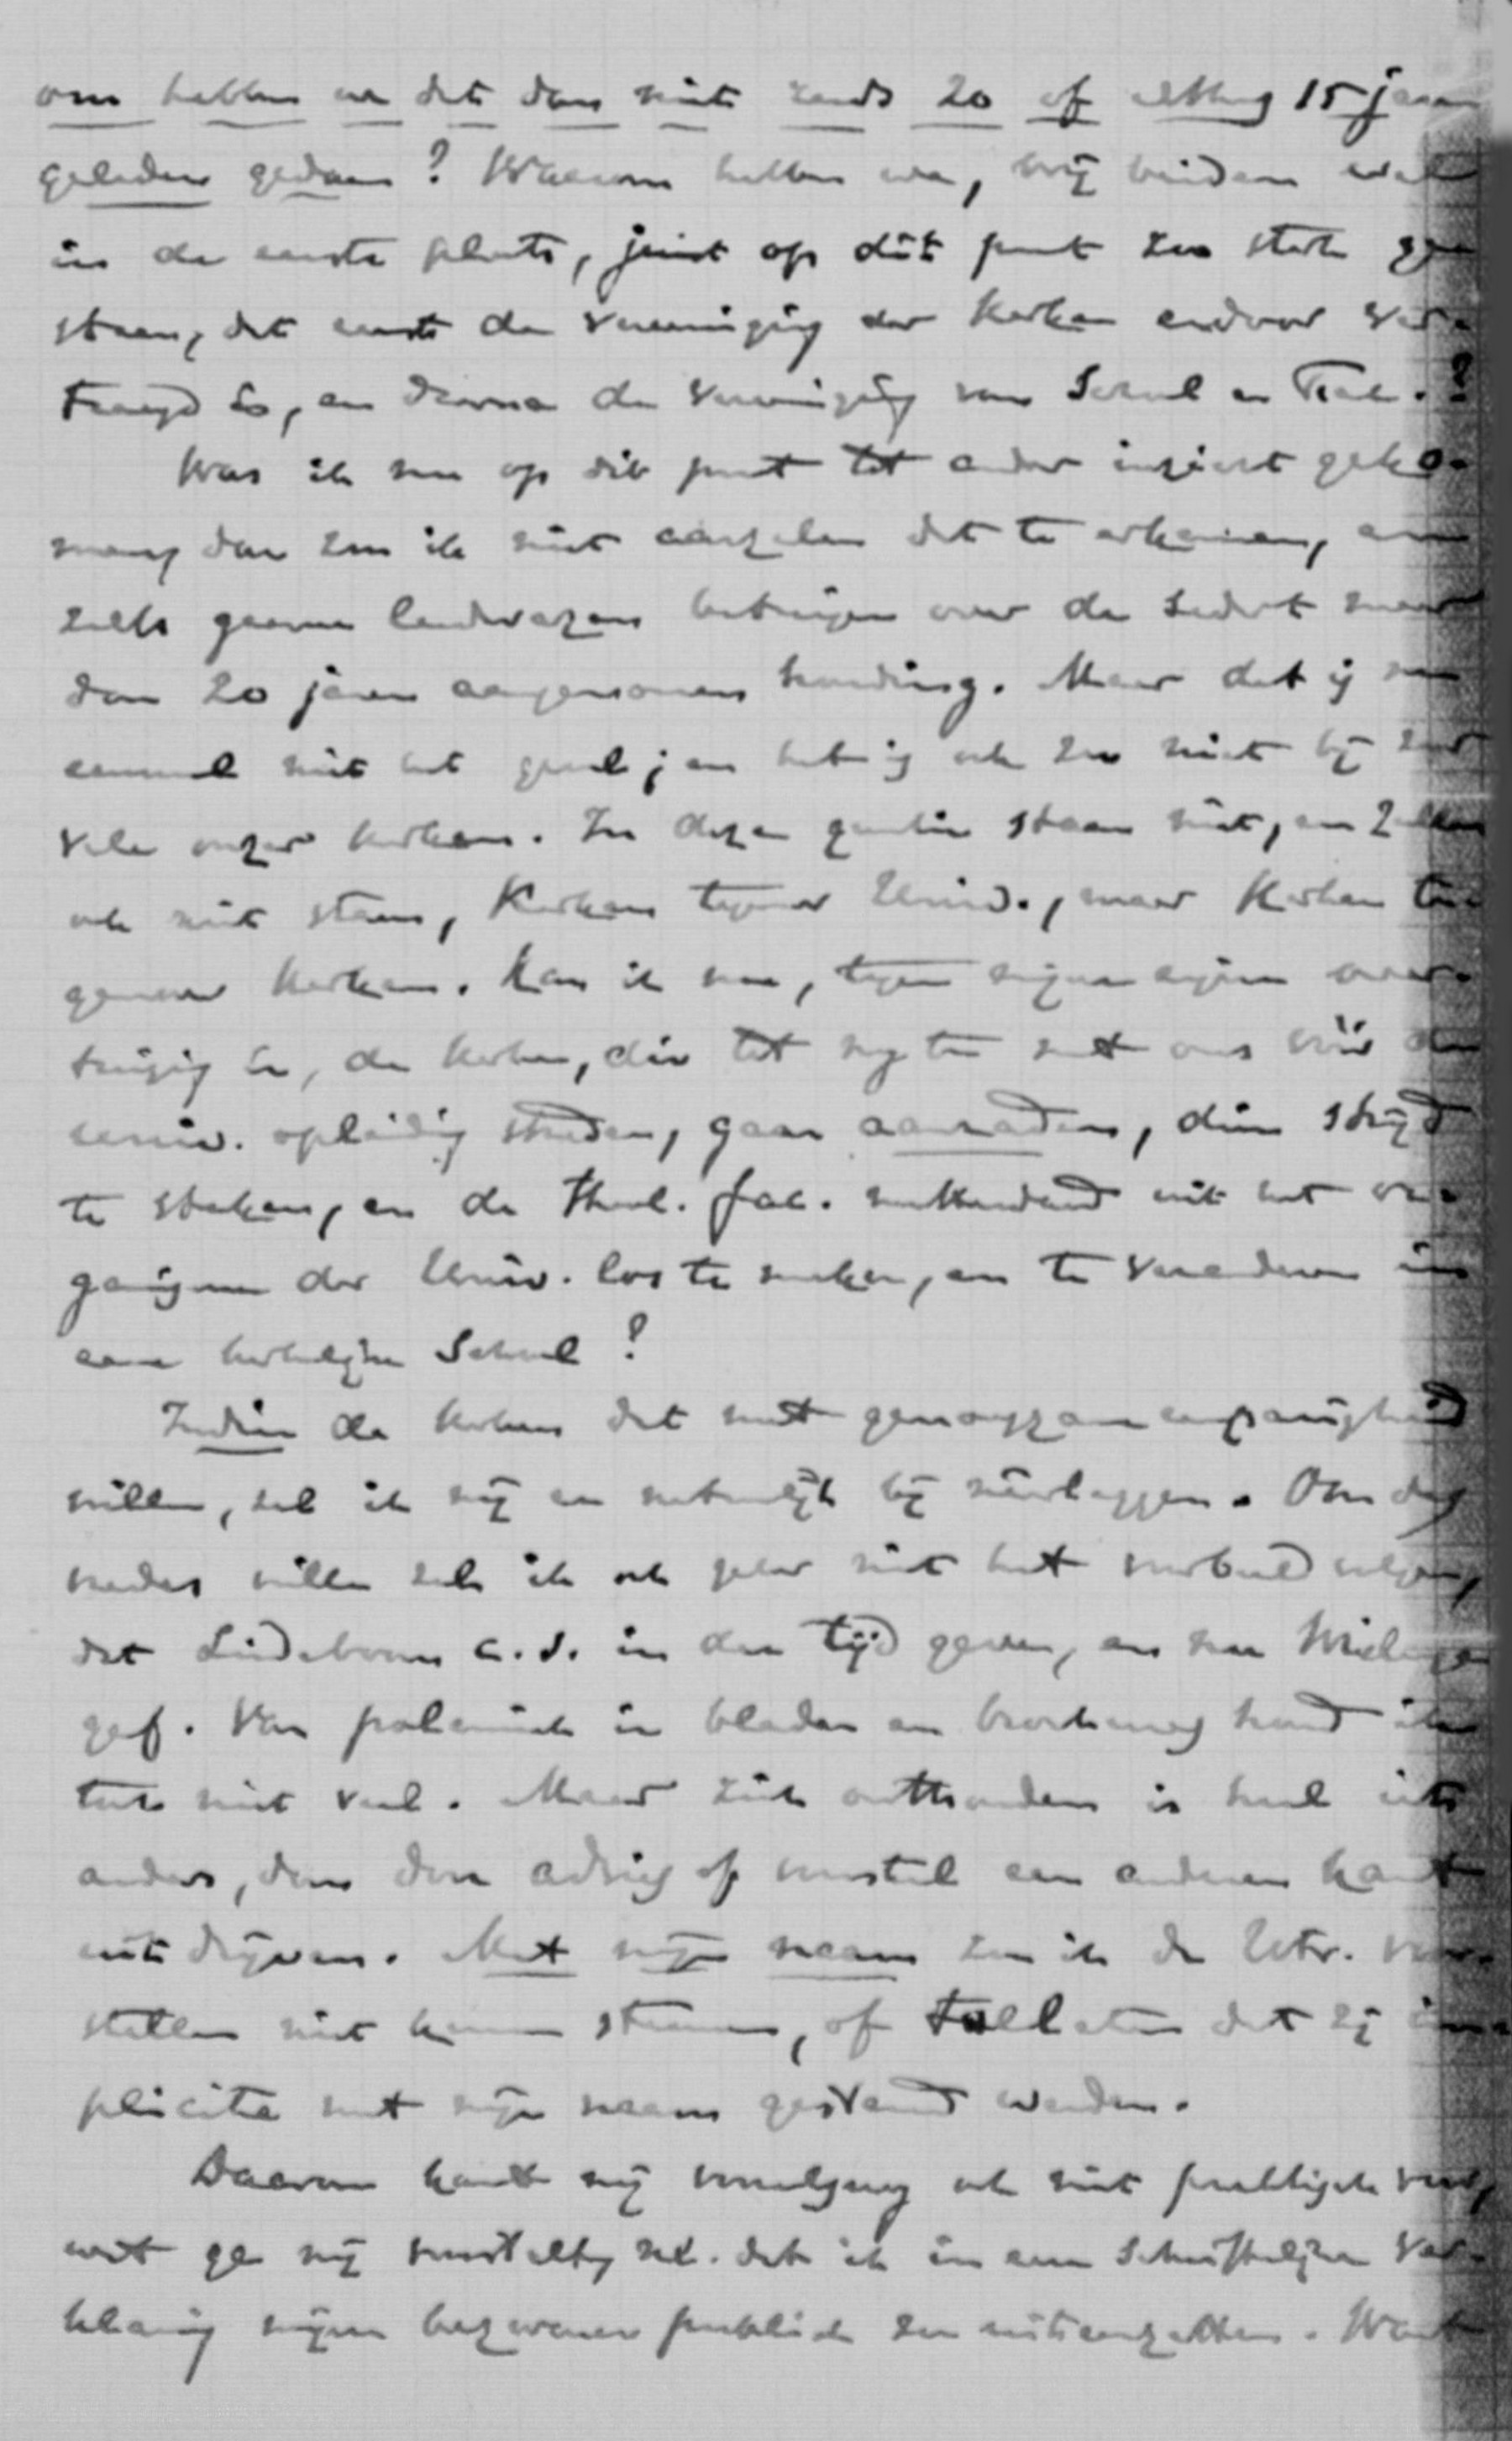 om hebben we dat dan niet reeds 20 of althans 15 jaar
geleden gedaan? Waarom hebben we, wij beiden wel
in de eerste plaats, juist op dit punt zoo sterk ge-
staan, dat eerst de Vereeniging der Kerken erdoor ver-
traagd is, en daarna de Vereeniging van School en Fac.?
Was ik nu op dit punt tot ander inzicht geko-
men, dan zou ik niet aarzelen dat te erkennen, en
zelfs gaarne leedwezen betuigen over de sedert meer
dan 20 jaren aangenomen houding. Maar dat is nu
eenmaal niet het geval; en het is ook zoo niet bij zeer
vele onzer kerken. In dezen quaestie staan niet, en zullen
ook niet staan, Kerken tegenover Univ., maar Kerken te-
genover Kerken. Kan ik nu, tegen mijne eigen over-
tuiging in, de kerken, die tot nog toe met ons vóór de
univ. opleiding streden, gaan aanraden, dien strijd
te staken, en de Theol. fac. metterdaad uit het or-
ganisme der Univ. los te maken, en te veranderen in
eene kerkelijke School?
Indien de kerken dat met genoegzame eenparigheid
willen, zal ik mij er natuurlijk bij neerleggen. Om des
vredes wille zal ik ook zeker niet het voorbeeld volgen,
dat Lindeboom c.s. in der tijd gaven, en nu Wielenga
gef. Van polemiek in bladen en brochures houd ik
toch niet veel. Maar zich onthouden is heel iets
anders, dan door advies of voorstel een anderen kant
uit drijven. Met mijn naam zou ik de Utr. voor-
stellen niet kunnen steunen, of toelaten dat zij im-
plicite met mijn naam gesteund werden.
Daarom had mij vooralsnog ook niet practisch voor,
wat ge mij voorstelt, nl. dat ik in een schriftelijke ver-
klaring mijne bezwaren publiek zou uiteenzetten. Want